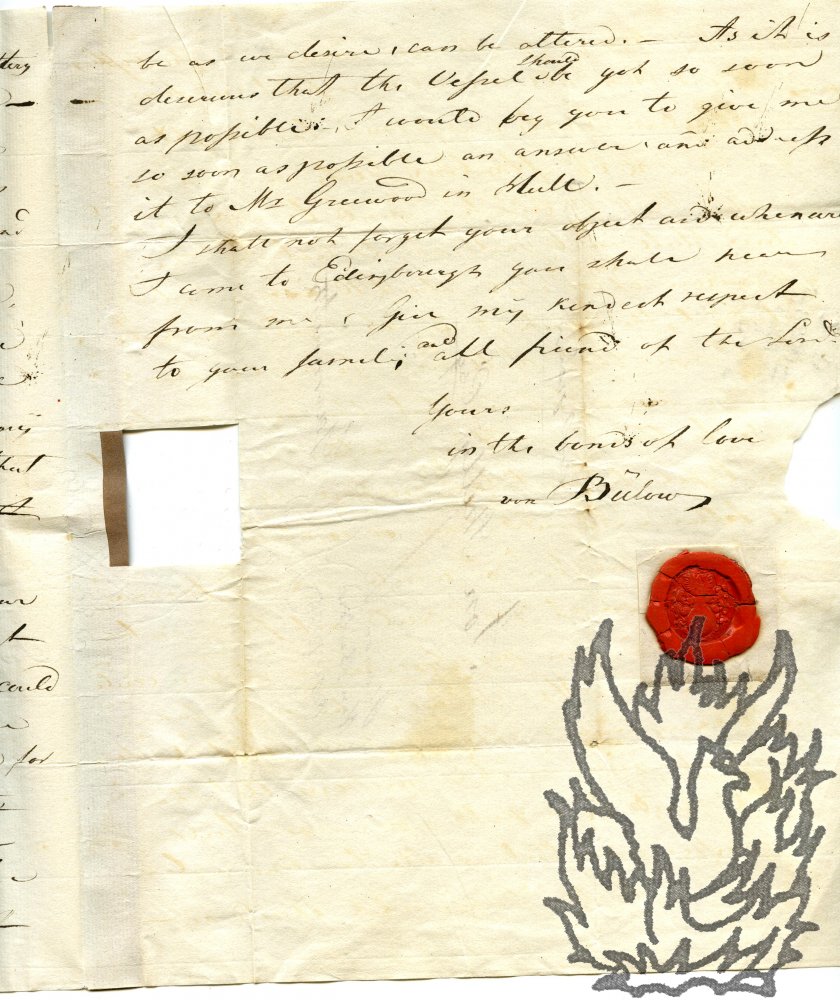 be as we desire, can be altered. — As it is
deserous that the Vessel should be got so soon
as possible. I would beg you to give me
so soon as possible an answer and address
it to Mr Greewood in Hull. —
I shall not forget your object and whenever
I come to Edingbourgh you shall hear
from me, Give my kendest respect
to your famili, and all friend of the Lord
Yours
in the bonds of love
von Bülow
ttery
nd
my
that
our
t
could
for